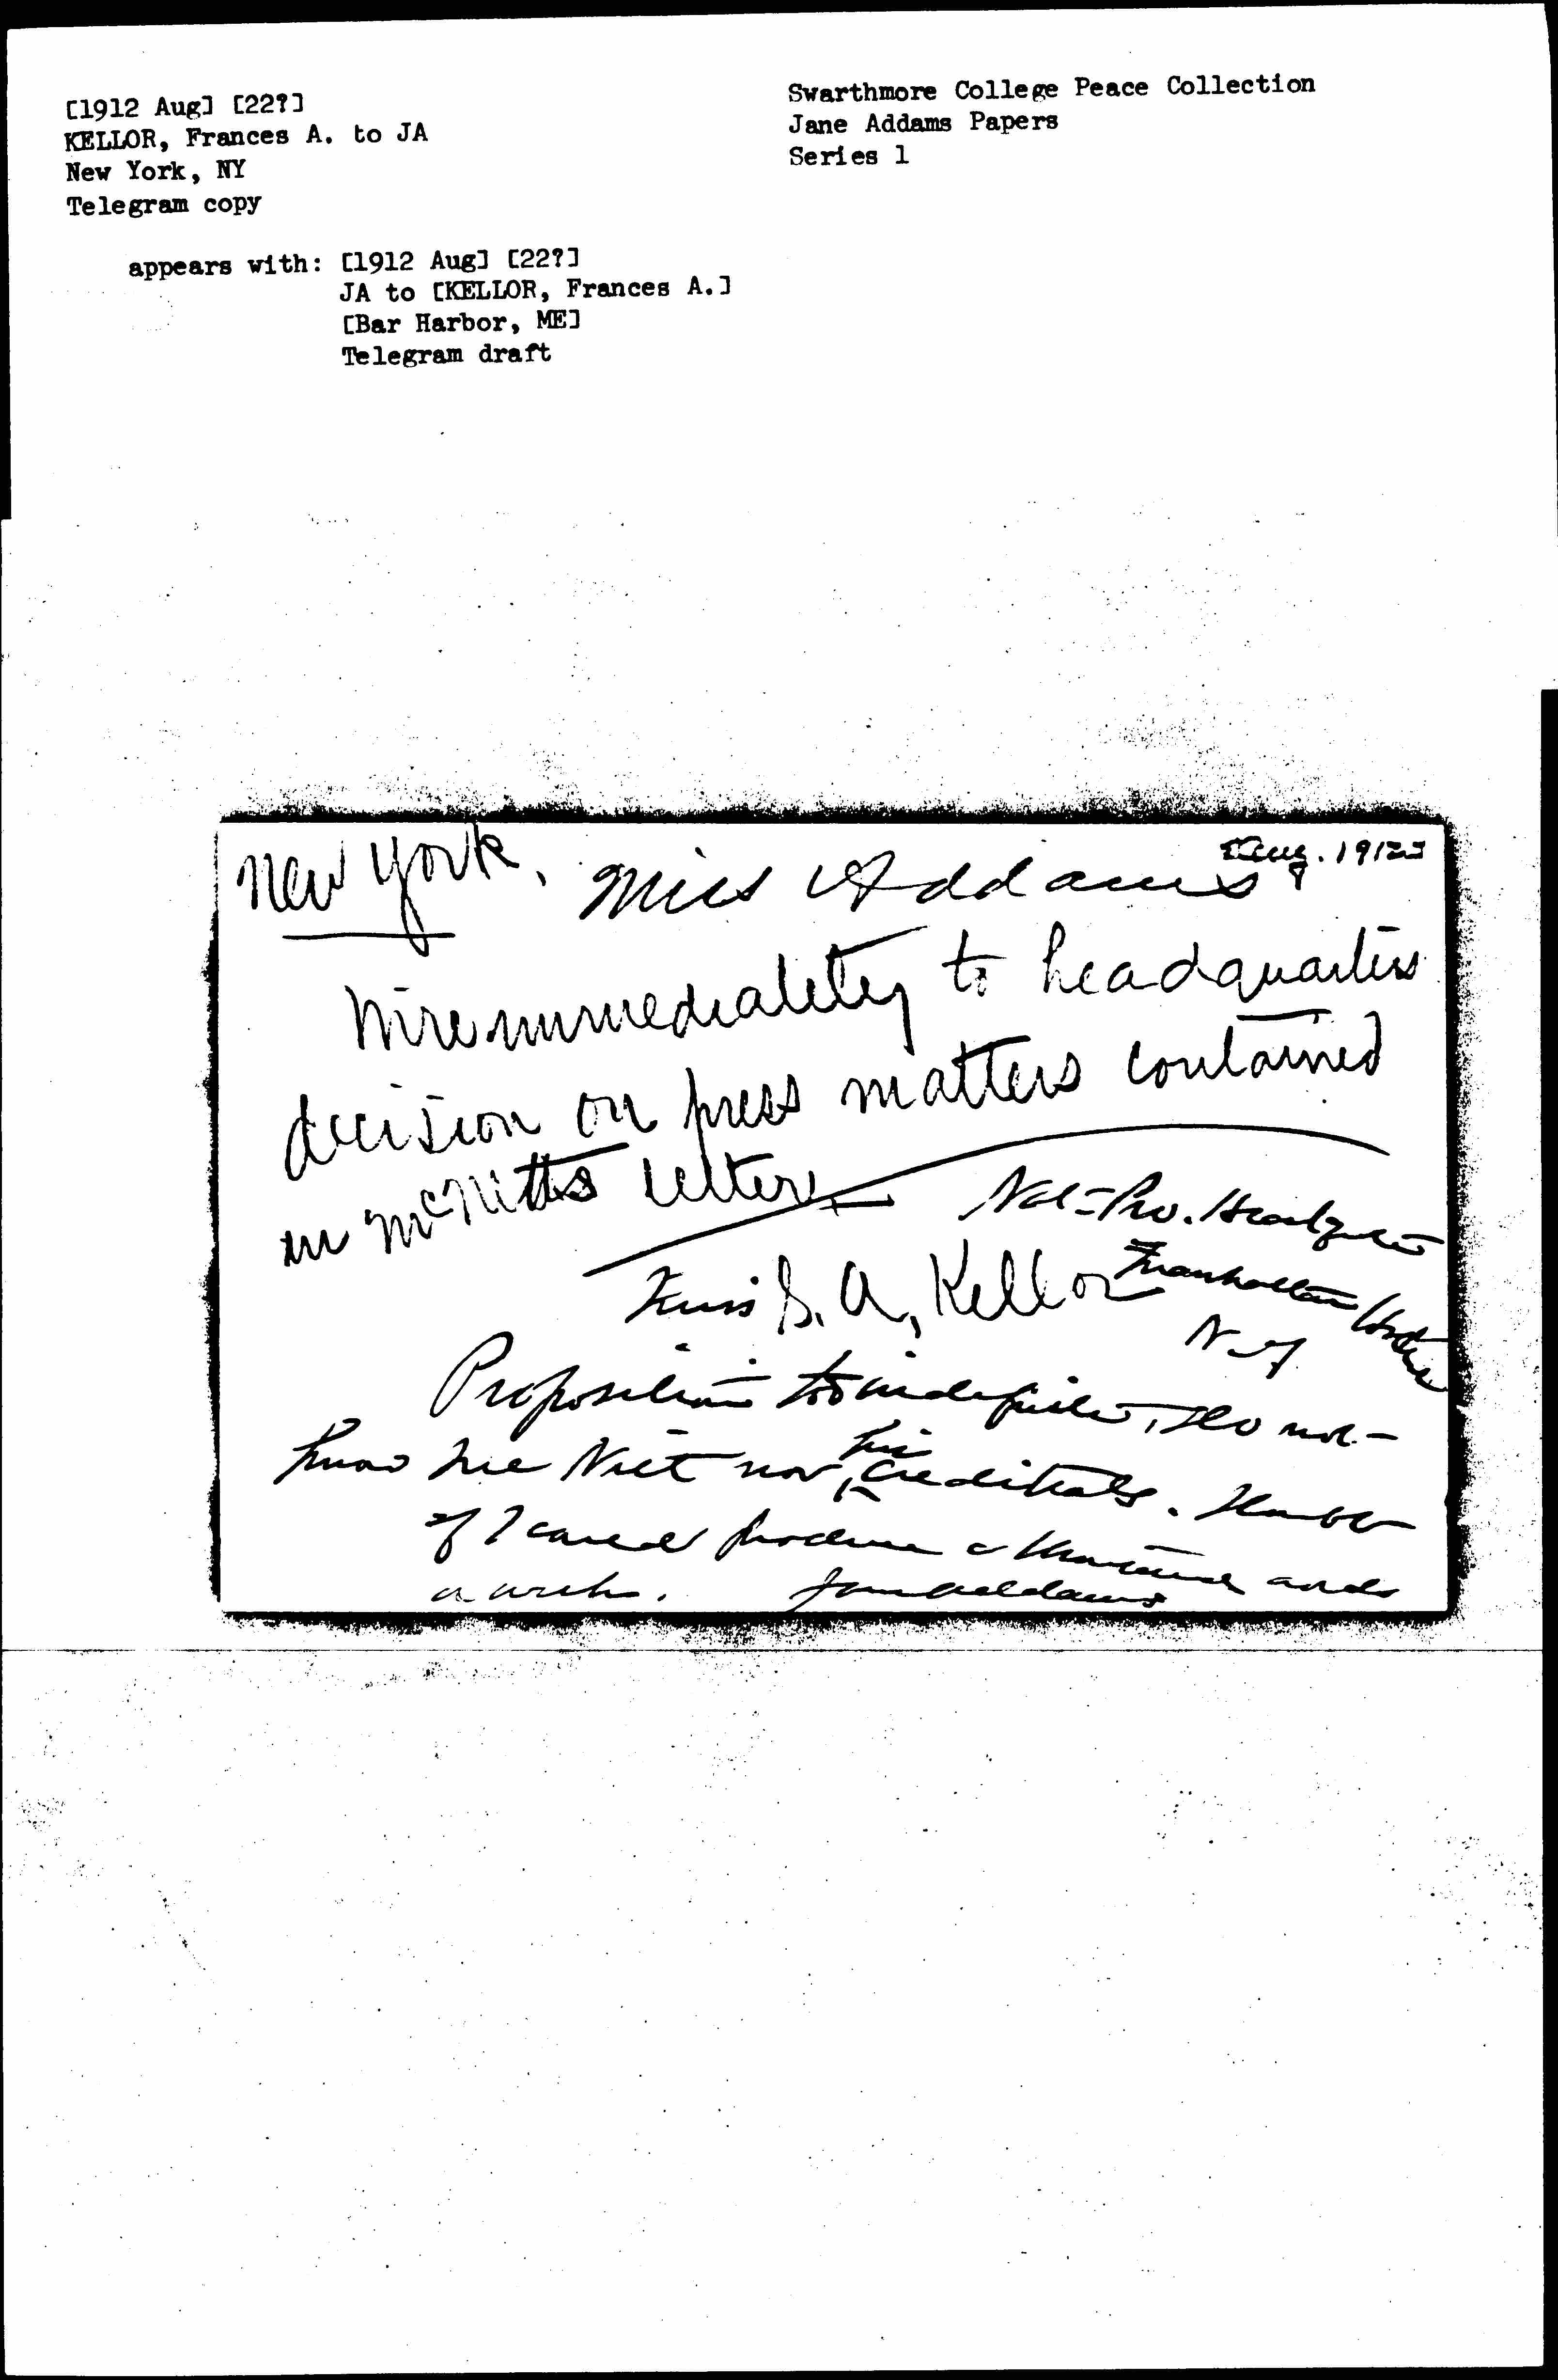 [1912 Aug] [22?]
KELLOR, Frances A. to JA
New York, NY
Telegram copy
appears with: [1912 Aug] [22?]
JA to [KELLOR, Frances A.]
[Bar Harbor, ME]
Telegram draft
Swarthmore College Peace Collection
Jane Addams Papers
Series 1
[Aug. 1912]
New York, Miss Addams
Wire immediately to headquarters
decision on press matters contained
in McNitts letter
Nat-Pro. Headquarters
Manhattan Hotel
N-Y.
Miss F. A. Kellor
Proposition too indefinite, Do not-
know Mc Nitt nor his creditials. Doubt
if I could produce a thousand words
a week. Jane Addams